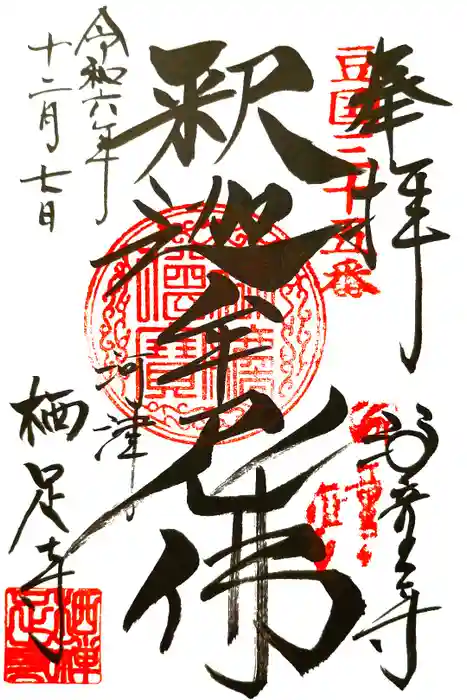 奉拝
豆国三十五番
釈迦牟尼佛
令和六年
十二月七日
河津
栖足寺